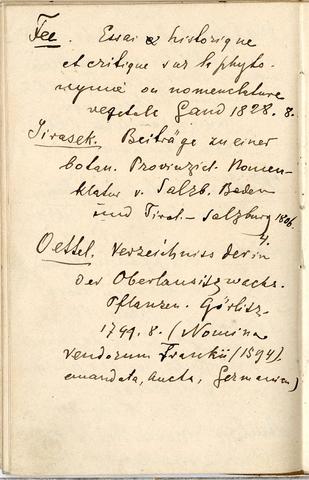 Fee. Essai & historique
et critique sur la phyto-
nymie ou nomenclature
vegetale Gand 1828. 8.
Jirasek. Beiträge zu einer
botan. Provinzial Nomen-
klatur v. Salzb. Baden
und Tirol - Salzburg 1806
4.
Oettel. Verzeichniss der in
der Oberlausitz wachs.
Pflanzen. Görlitz.
1799. 8. (Nomina
Frankii (1594)
emandata, aucta, Germanica)